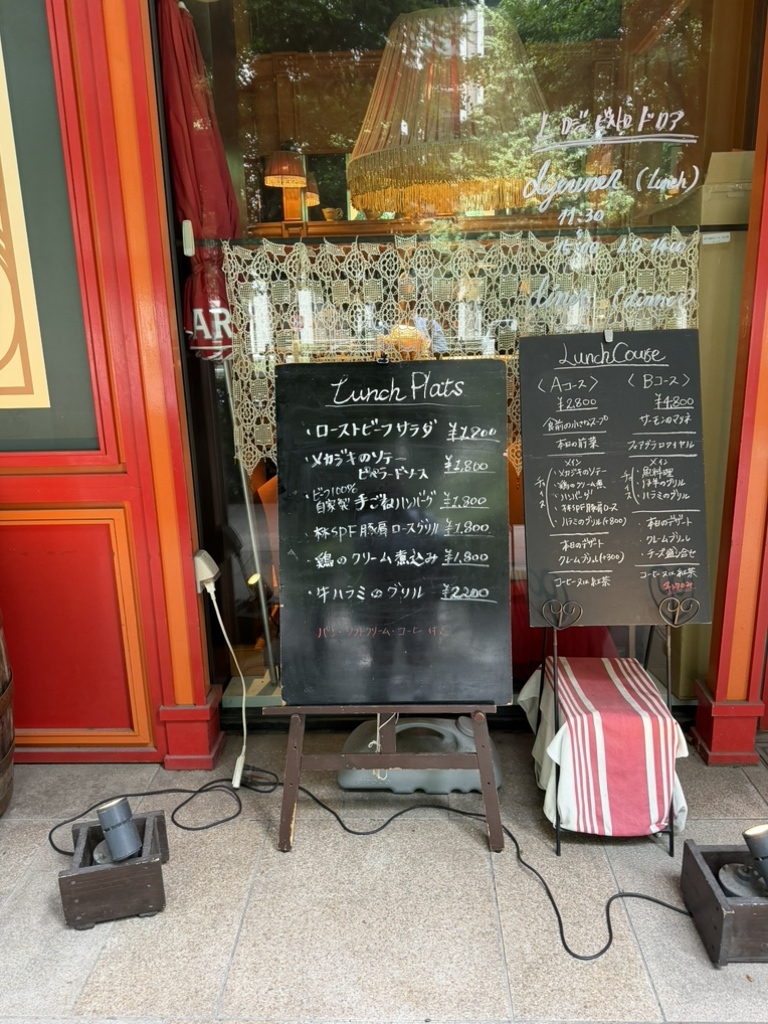 ロヂ ビストロ ドロア
dejeuner (lunch)
11:30
dinner (dinner)
AR
Lunch Plats
・ローストビーフサラダ ¥1,800
・メカジキのソテー
ビガラードソース ¥1,800
・ビーフ100%
自家製 手ごねハンバーグ ¥1,800
・林SPF豚肩ロースグリル ¥1,800
・鶏のクリーム煮込み ¥1,800
・牛ハラミのグリル ¥2200
パン・ソフトクリーム・コーヒー付
Lunch Course
〈Aコース〉
¥2,800
食前の小さなスープ
本日の前菜
メイン
チョイス
メカジキのソテー
鶏のクリーム煮
ハンバーグ
林SPF豚肩ロース
ハラミのグリル(+800)
本日のデザート
クレームブリュレ(+300)
コーヒー又は紅茶
〈Bコース〉
¥4,800
サーモンのマリネ
フォアグラロワイヤル
メイン
チョイス
魚料理
仔羊のグリル
ハラミのグリル
本日のデザート
クレームブリュレ
チーズ盛合せ
コーヒー又は紅茶